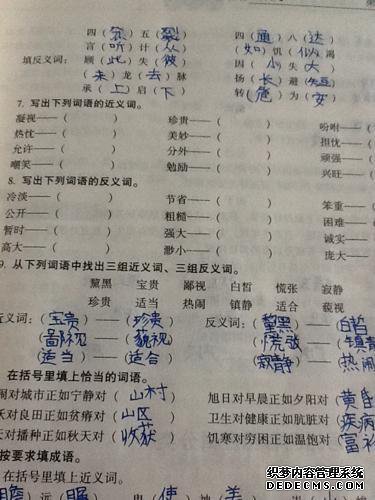 四（分）五（裂） 四（通）八（达）
言（听）计（从） （如）饥（似）渴
填反义词： 顾（此）失（彼） 因（小）失（大）
（来）龙（去）脉 扬（长）避（短）
承（上）启（下） 转（危）为（安）
7. 写出下列词语的近义词。
凝视——（ ） 珍贵——（ ） 吩咐——（
热忱——（ ） 美妙——（ ） 担忧——（
允许——（ ） 分外——（ ） 顽强——（
嘲笑——（ ） 勉励——（ ） 兴旺——（
8. 写出下列词语的反义词。
冷淡——（ ） 节省——（ ） 笨重——（
公开——（ ） 粗糙——（ ） 困难——（
暂时——（ ） 强大——（ ） 诚实——（
高大——（ ） 渺小——（ ） 庞大——（
9. 从下列词语中找出三组近义词、三组反义词。
黧黑 宝贵 鄙视 白皙 慌张 寂静
珍贵 适当 热闹 镇静 适合 藐视
近义词：（宝贵）——（珍贵） 反义词：（黧黑）——（白皙
（鄙视）——（藐视） （慌张）——（镇静
（适当）——（适合） （寂静）——（热闹
在括号里填上恰当的词语。
闹对城市正如宁静对（山村） 旭日对早晨正如夕阳对（黄昏
沃对良田正如贫瘠对（山区） 卫生对健康正如肮脏对（疾病
天对播种正如秋天对（收获） 饥寒对穷困正如温饱对（富裕
按要求填成语。
在括号里填上近义词。
织梦内容管理系统
DEDECMS.COM